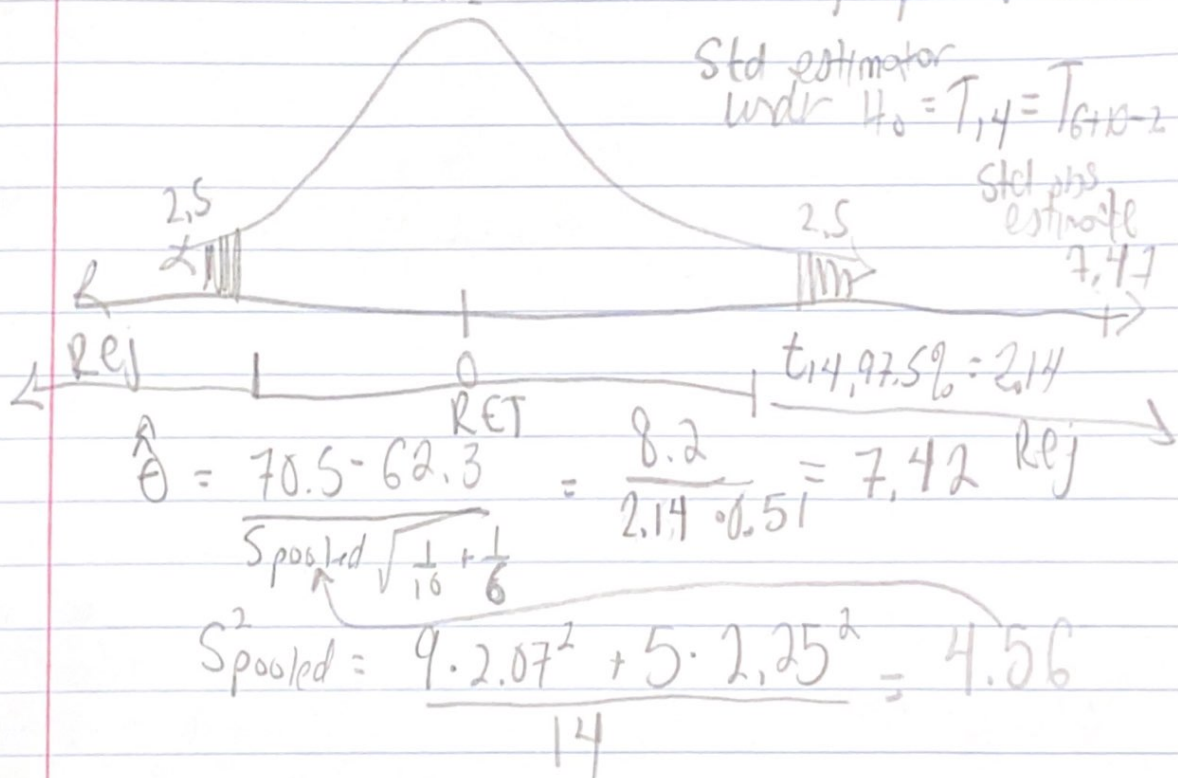 Std estimator
under H₀ = T₁₄ = T₆₊₁₀₋₂
Std obs
estimate
7.47
2.5
2.5
Rej
0
RET
t₁₄,97.5% = 2.14
Rej
θ̂ = (70.5 - 62.3) / (Spooled √(1/10 + 1/6)) = 8.2 / (2.14 · 0.51) = 7.42
S²pooled = (9 · 2.07² + 5 · 2.25²) / 14 = 4.56